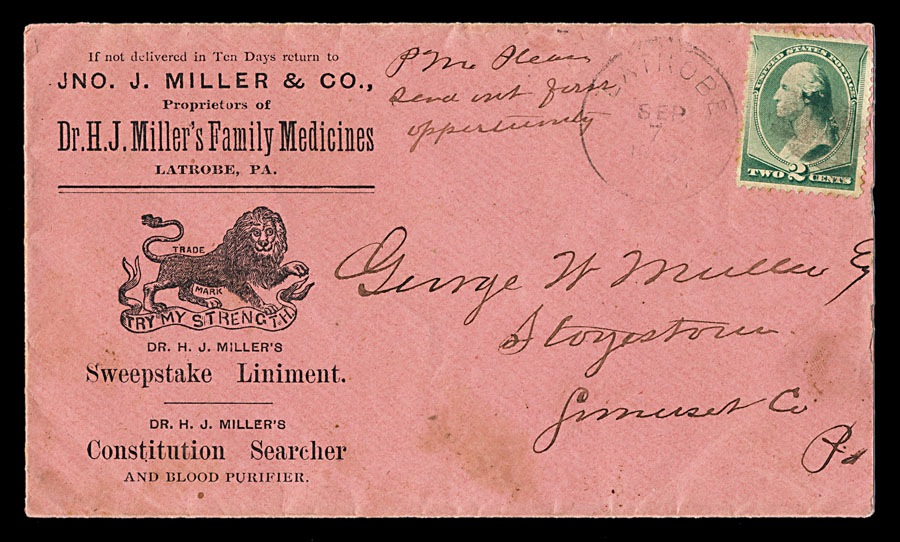 If not delivered in Ten Days return to
JNO. J. MILLER & CO.,
Proprietors of
Dr. H. J. Miller's Family Medicines
LATROBE, PA.
TRADE
MARK
TRY MY STRENGTH
DR. H. J. MILLER'S
Sweepstake Liniment.
DR. H. J. MILLER'S
Constitution Searcher
AND BLOOD PURIFIER.
P M Please
send out first
opportunity
LATROBE
SEP
7
UNITED STATES POSTAGE
TWO 2 CENTS
George W Muller Esq
Stoyestown
Somerset Co
Pa